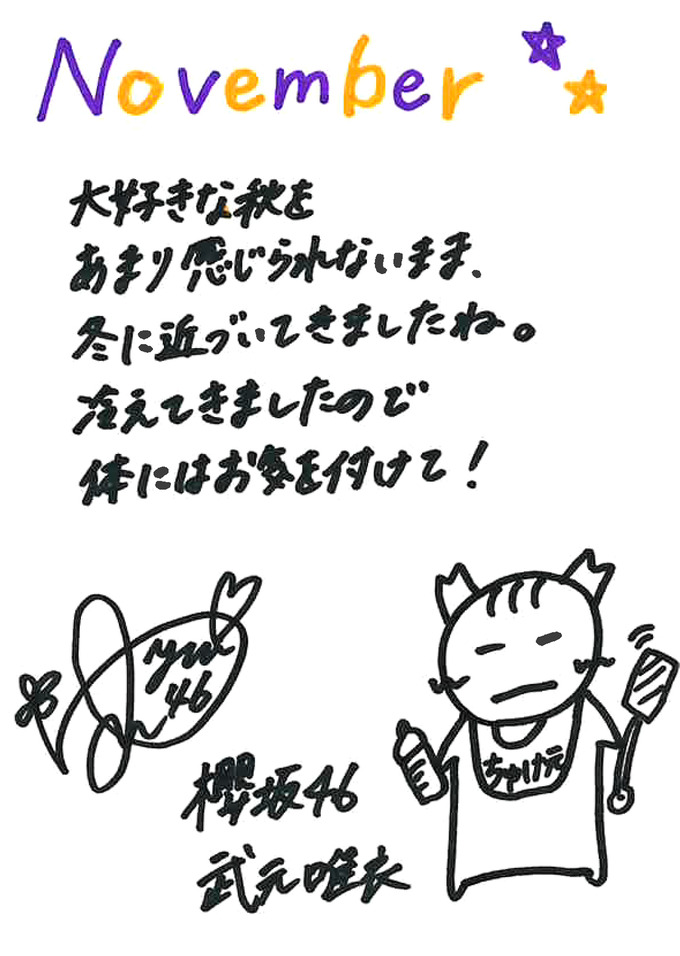 November
大好きな秋を
あまり感じられないまま、
冬に近づいてきましたね。
冷えてきましたので
体にはお気を付けて!
46
ちゅけ元
櫻坂46
武元唯衣